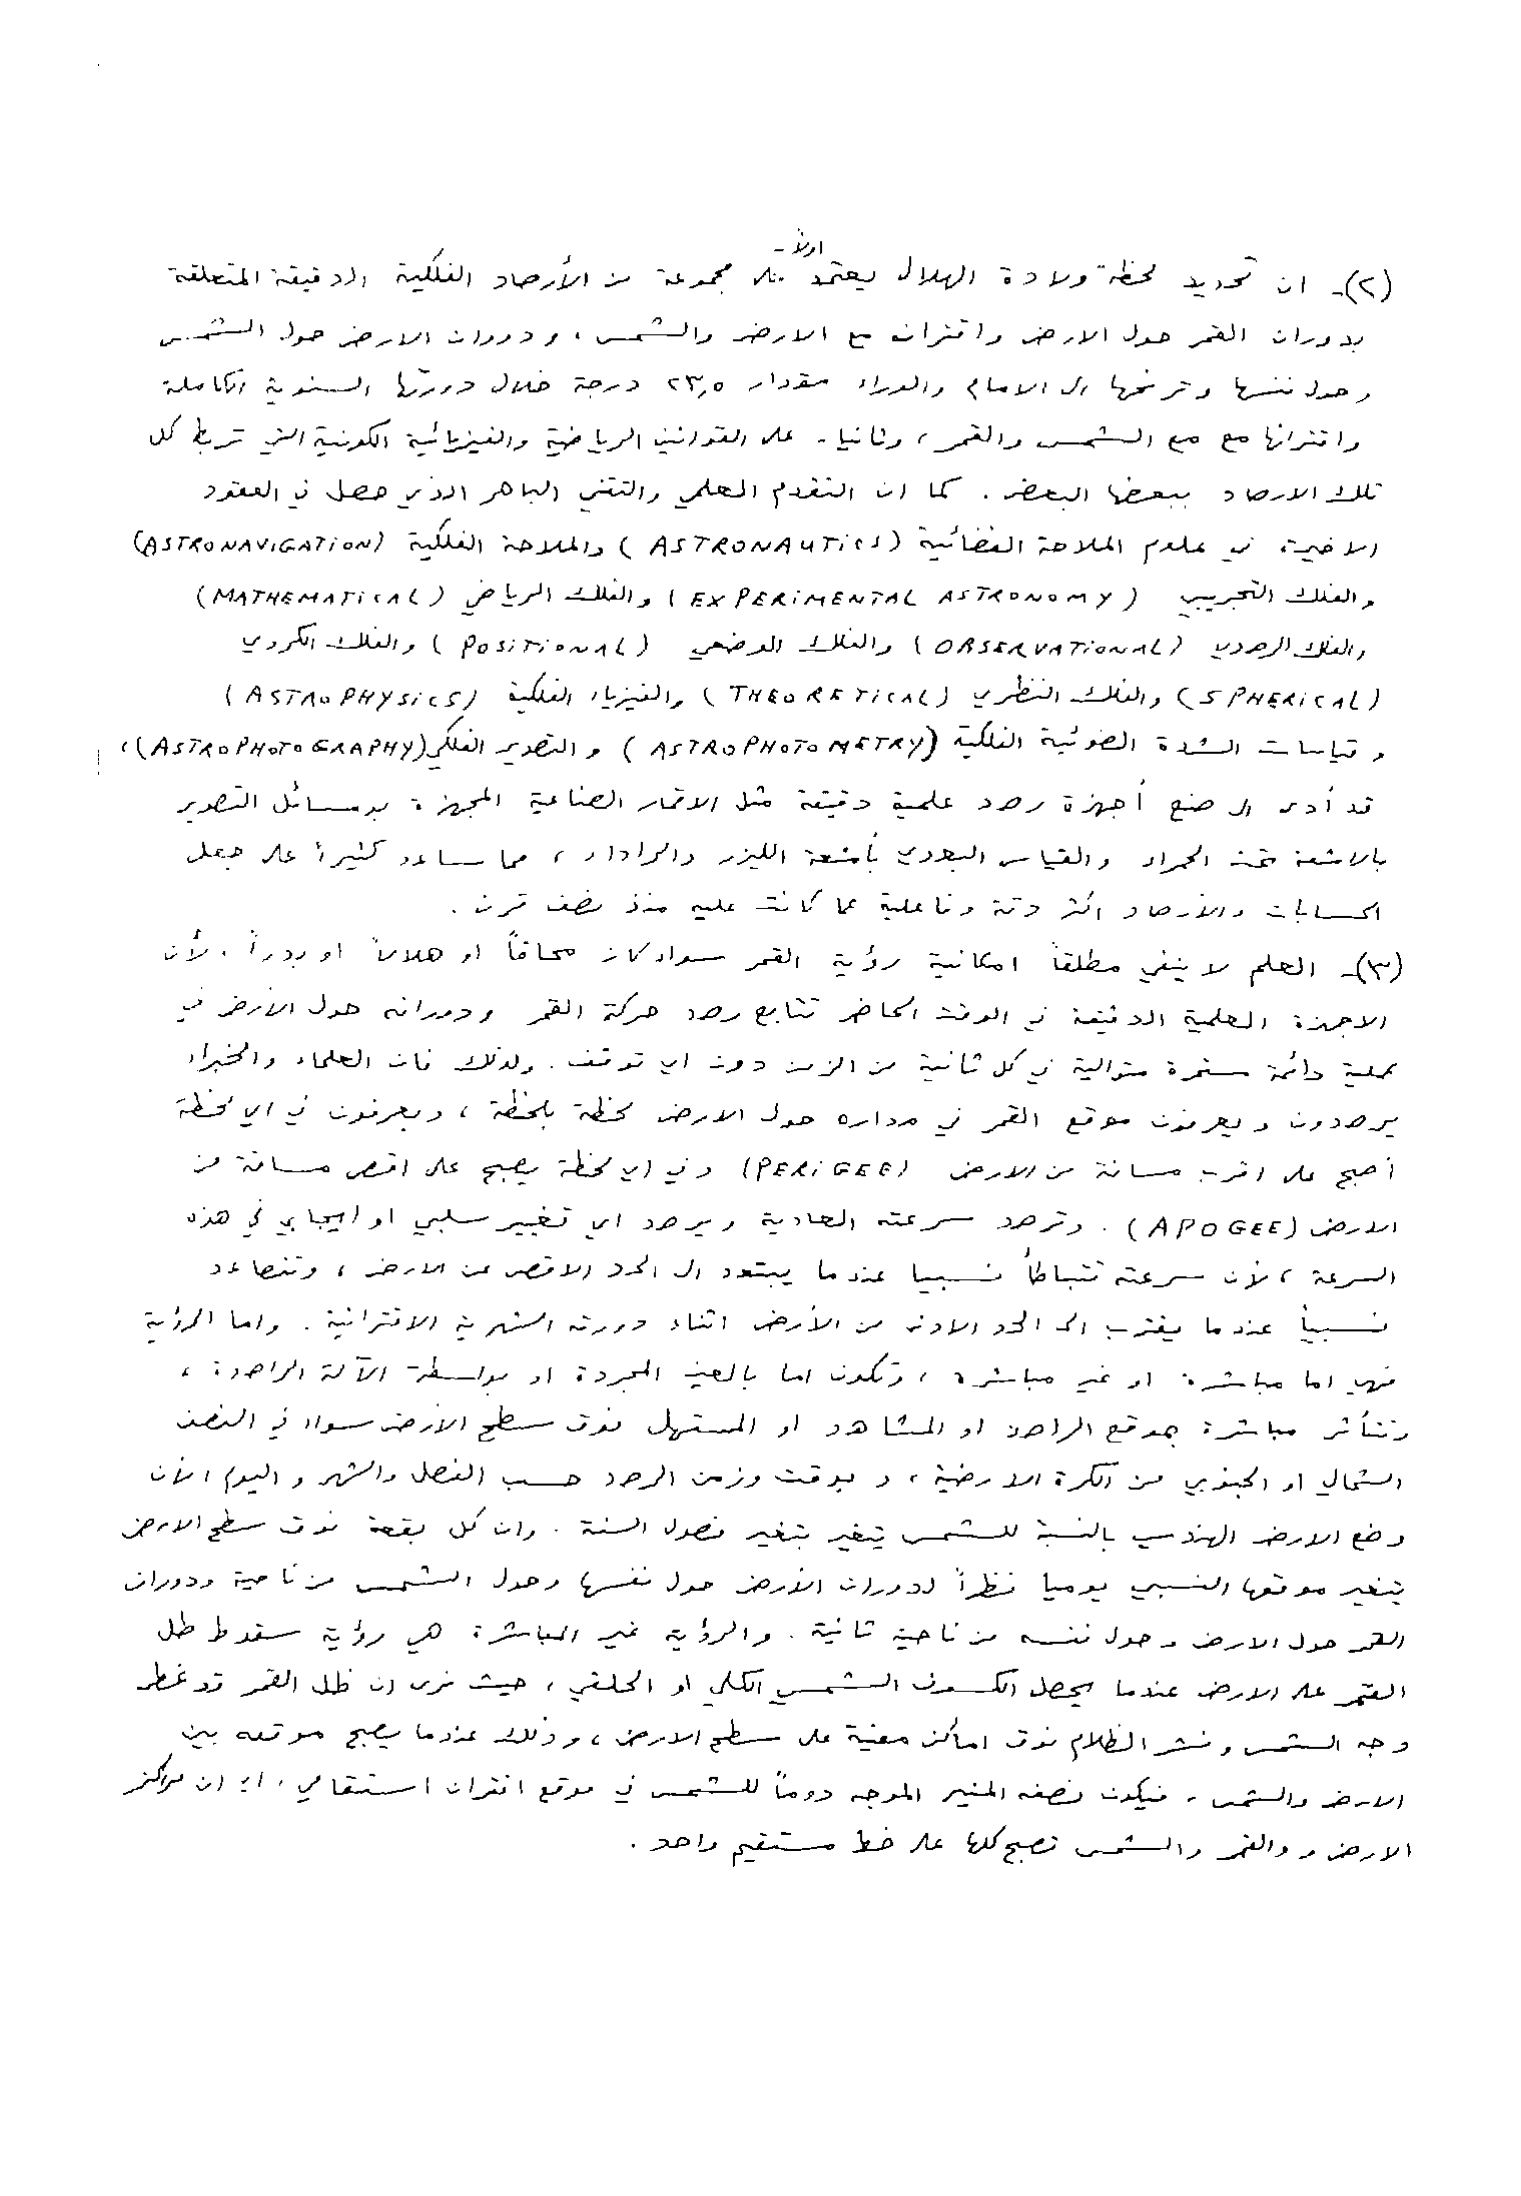 اولاً -
(٢)- ان تحديد لحظة ولادة الهلال يعتمد على مجموعة من الأرصاد الفلكية الدقيقة المتعلقة
بدوران القمر حول الارض واقترانه مع الارض والشمس ، ودوران الارض حول الشمس
وحول نفسها وترنحها الى الامام والوراء مقدار ٢٣,٥ درجة خلال دورتها السنوية الكاملة
واقترانها مع مع الشمس والقمر ، وثانيا - على القوانين الرياضية والفيزيائية الكونية التي تربط كل
تلك الارصاد ببعضها البعض . كما ان التقدم العلمي والتقني الباهر الذي حصل في العقود
الاخيرة في علوم الملاحة الفضائية (ASTRONAUTiCS) والملاحة الفلكية (ASTRONAViGATiON)
والفلك التجريبي (EXPERiMENTAL ASTRONOMY) والفلك الرياضي (MATHEMATiCAL)
والفلك الرصدي (OBSERVATiONAL) والفلك الوضعي (POSiTiONAL) والفلك الكروي
(SPHERiCAL) والفلك النظري (THEORETiCAL) والفيزياء الفلكية (ASTROPHYSiCS)
وقياسات الشدة الضوئية الفلكية (ASTROPHOTOMETRY) والتصوير الفلكي (ASTROPHOTOGRAPHY) ،
قد أدى الى صنع أجهزة رصد علمية دقيقة مثل الاقمار الصناعية المجهزة بوسائل التصوير
بالاشعة تحت الحمراء والقياس البعدي بأشعة الليزر والرادار ، مما ساعد كثيراً على جعل
الحسابات والأرصاد اكثر دقة وفاعلية عما كانت عليه منذ نصف قرن .
(٣)- العلم لا ينفي مطلقاً امكانية رؤية القمر سواء كان محاقاً او هلالاً او بدراً . لأن
الاجهزة العلمية الدقيقة في الوقت الحاضر تتابع رصد حركة القمر ودورانه حول الأرض في
عملية دائمة مستمرة متوالية في كل ثانية من الزمن دون اي توقف . ولذلك فان العلماء والخبراء
يرصدون ويعرفون موقع القمر في مداره حول الارض لحظة بلحظة ، ويعرفون في اي لحظة
أصبح على اقرب مسافة من الارض (PERiGEE) وفي اي لحظة يصبح على اقصى مسافة من
الارض (APOGEE) . وترصد سرعته العادية ويرصد اي تغيير سلبي او ايجابي في هذه
السرعة ، لأن سرعته تتباطأ نسبيا عندما يبتعد الى الحد الاقصى عن الارض ، وتتصاعد
نسبياً عندما يقترب الى الحد الادنى من الأرض اثناء دورته الشهرية الاقترانية . واما الرؤية
فهي اما مباشرة او غير مباشرة ، وتكون اما بالعين المجردة او بواسطة الآلة الراصدة ،
وتتأثر مباشرة بموقع الراصد او المشاهد او المستهل فوق سطح الأرض سواء في النصف
الشمالي او الجنوبي من الكرة الارضية ، وبوقت وزمن الرصد حسب الفصل والشهر واليوم ، لأن
وضع الارض الهندسي بالنسبة للشمس يتغير بتغير فصول السنة . وان كل بقعة فوق سطح الارض
يتغير موقعها النسبي يوميا نظراً لدوران الأرض حول نفسها وحول الشمس من ناحية ودوران
القمر حول الارض وحول نفسه من ناحية ثانية . والرؤية غير المباشرة هي رؤية سقوط ظل
القمر على الارض عندما يحصل الكسوف الشمسي الكلي او الحلقي ، حيث نرى ان ظل القمر قد غطى
وجه الشمس ونشر الظلام فوق اماكن معينة على سطح الارض ، وذلك عندما يصبح موقعه بين
الارض والشمس ، فيكون نصفه المنير الموجه دوماً للشمس في موقع اقتران استقامي ، اي ان مراكز
الارض و والقمر والشمس تصبح كلها على خط مستقيم واحد .